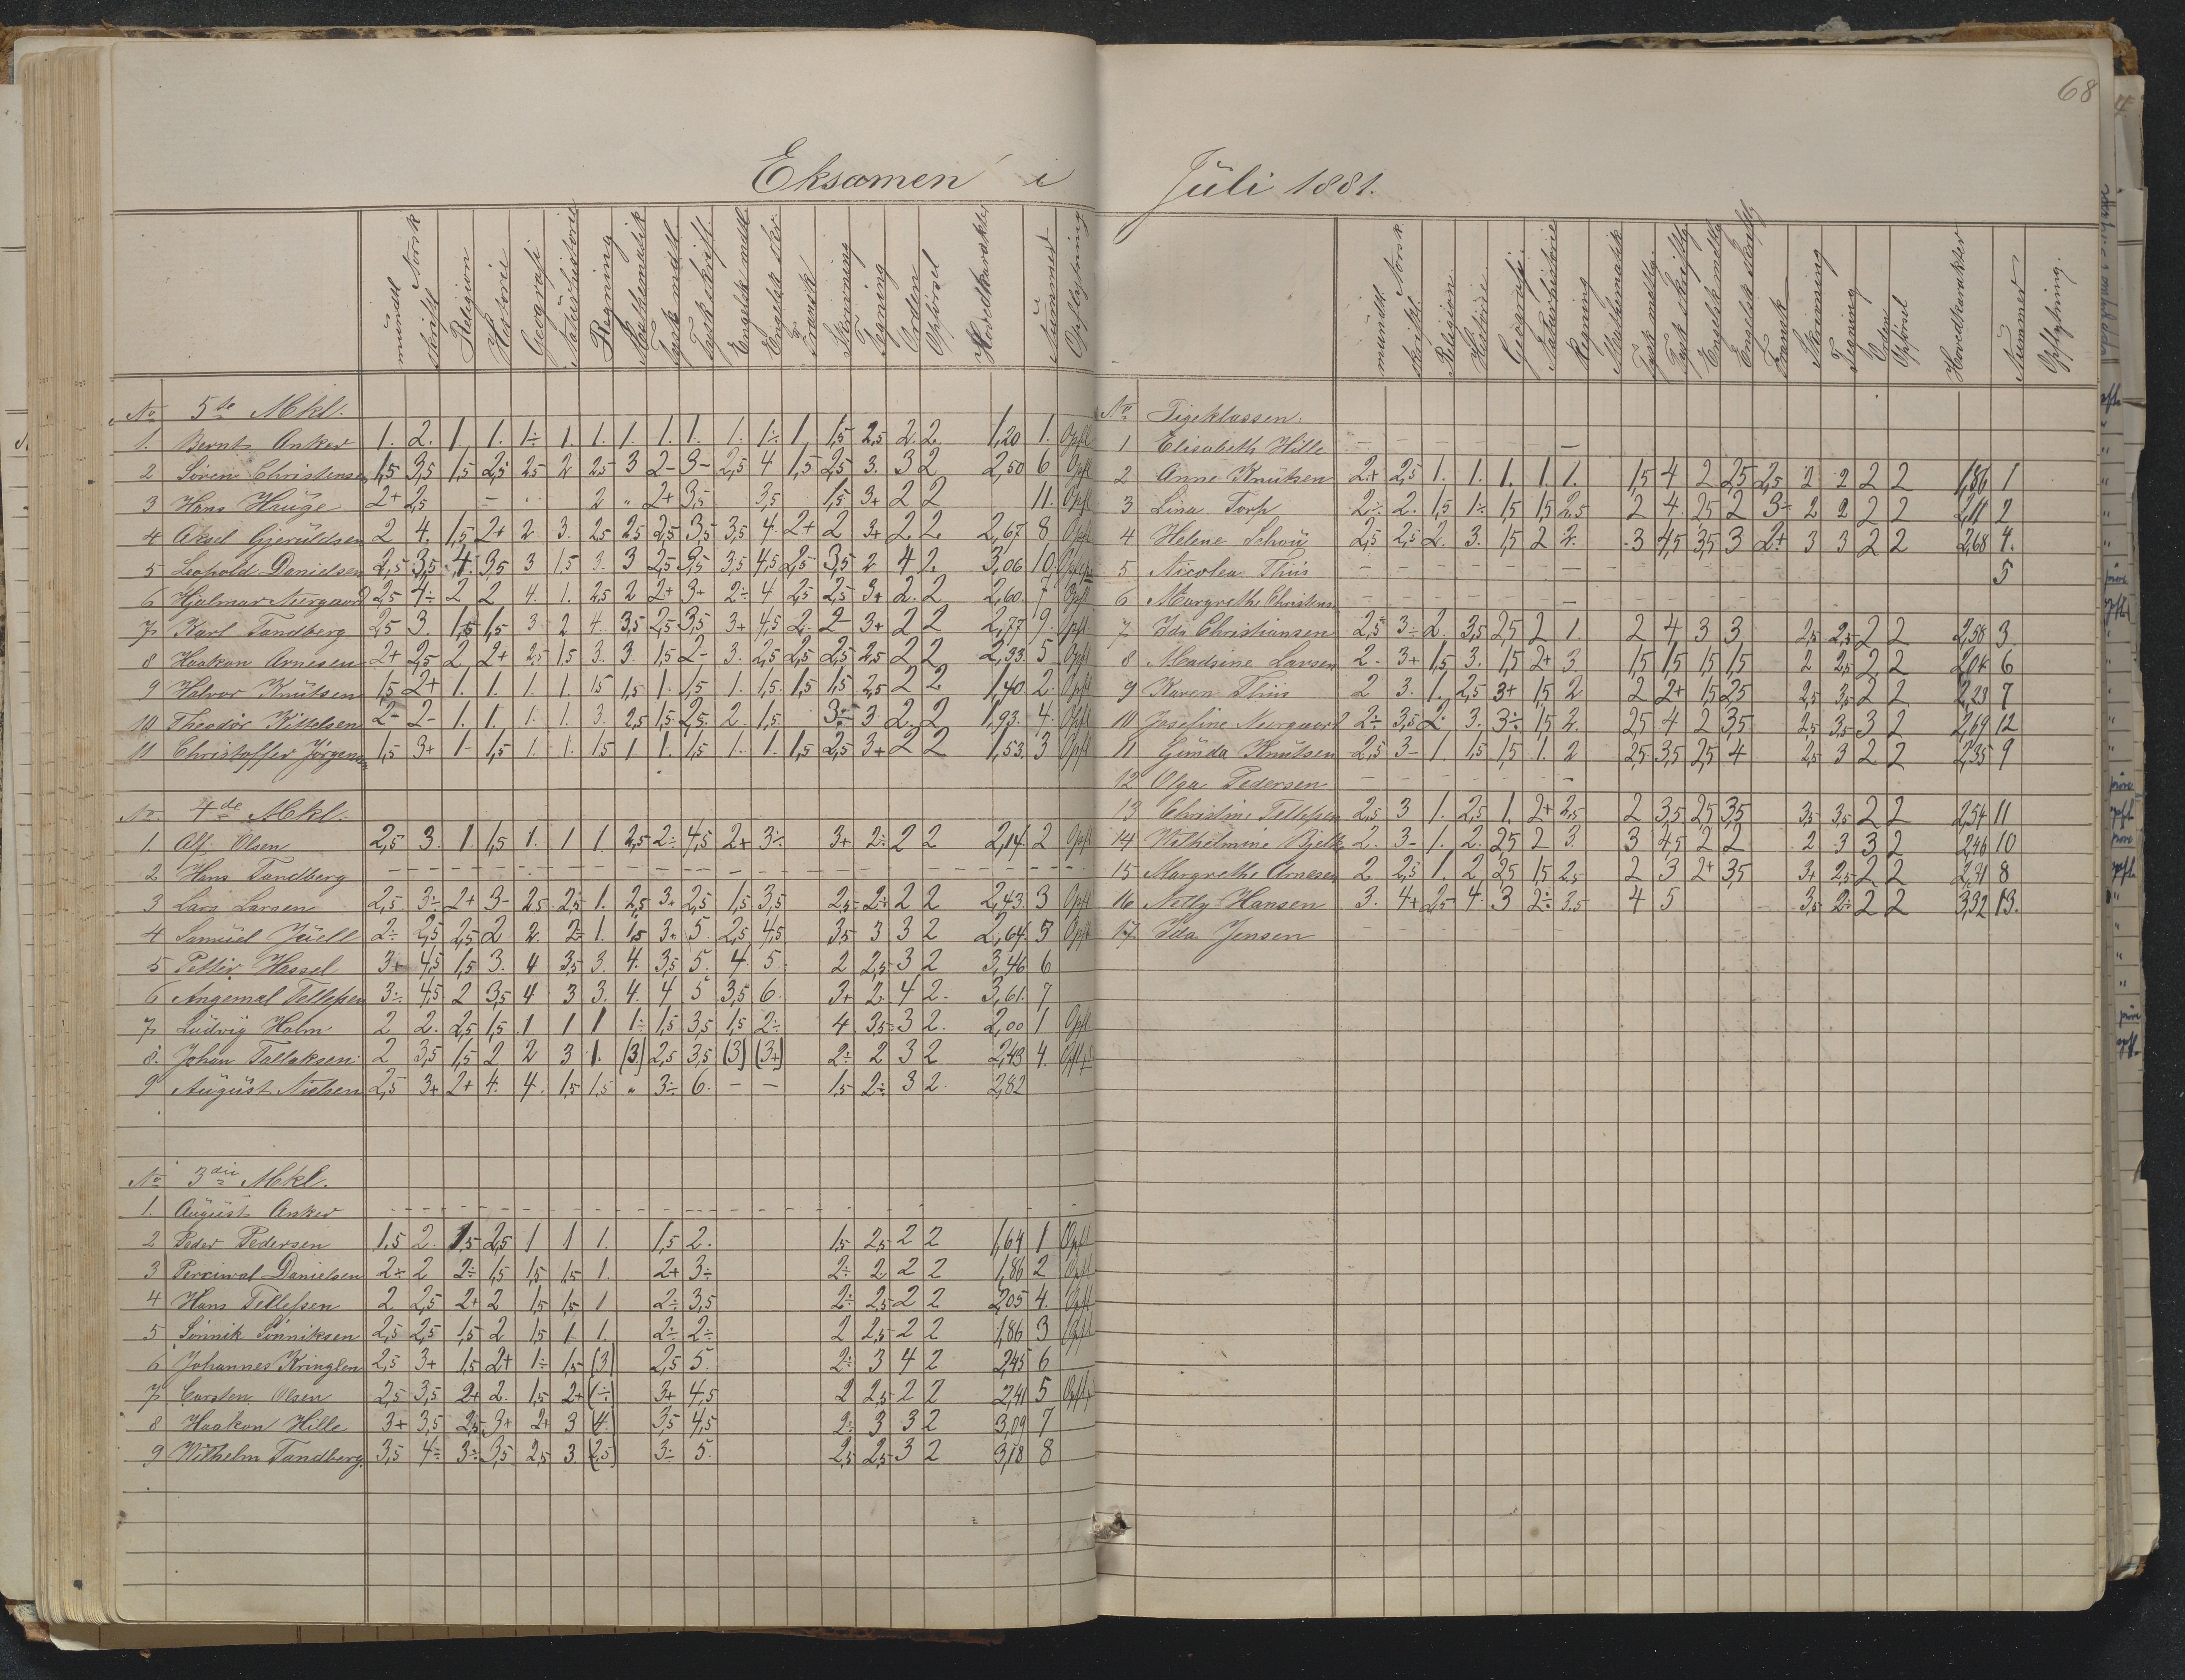 68
Eksamen i
mundtl. skriftl. Norsk Religion Historie Geografi Naturhistorie Regning Mathematik Tysk mdtl. Tysk skriftl. Engelsk mdtl. Engelsk skr. Fransk Skrivning Tegning Orden Opførsel Hovedkarakter Nummer Opflytning
No 5te Mkl.
1. Bernt Anker 1. 2. 1 1. 1÷ 1. 1. 1. 1. 1. 1. 1÷ 1 1,5 2,5 2. 2. 1,20 1. Opfl
2 Søren Christensen 1,5 3,5 1,5 2,5 2,5 2 2,5 3 2- 3- 2,5 4 1,5 2,5 3. 3 2 2,50 6 Opfl
3 Hans Hauge 2+ 2,5 - 2 " 2+ 3,5 3,5 1,5 3+ 2 2 11. Opfl
4 Aksel Gjeruldsen 2 4. 1,5 2+ 2 3. 2,5 2,5 2,5 3,5 3,5 4. 2+ 2 3+ 2. 2. 2,67 8 Opfl
5 Leopold Danielsen 2,5 3,5 4. 3,5 3 1,5 3. 3 2,5 3,5 3,5 4,5 2,5 3,5 2 4 2. 3,06 10.
6 Hjalmar Neergaard 2,5 4÷ 2 2 4. 1. 2,5 2 2+ 3+ 2÷ 4 2,5 2,5 3+ 2. 2 2,60. 7 Opfl
7 Karl Tandberg 2,5 3. 1,5 1,5 3. 2 4. 3,5 2,5 3,5 3+ 4,5 2. 2- 3+ 2 2 2,77 9. Opfl
8 Haakon Arnesen 2+ 2,5 2 2+ 2,5 1,5 3. 3. 1,5 2- 3. 2,5 2,5 2,5 2,5 2 2 2,33. 5 Opfl
9 Halvor Knutsen 1,5 2+ 1. 1. 1. 1. 1,5 1,5 1. 1,5 1. 1,5. 1,5 1,5 2,5 2 2. 1,40. 2. Opfl
10 Theodor Kittelsen 2- 2- 1. 1. 1. 1. 3. 2,5 1,5 2,5. 2. 1,5. 3÷ 3. 2. 2 1,93. 4. Opfl
11 Christoffer Jørgensen 1,5 3+ 1- 1,5 1. 1. 1,5 1 1. 1,5 1. 1. 1,5 2,5 3+ 2 2 1,53. 3 Opfl
No. 4de Mkl.
1. Alf Olsen 2,5 3. 1. 1,5 1. 1 1. 2,5 2÷ 4,5 2+ 3÷ 3+ 2÷ 2 2 2,14. 2 Opfl
2 Hans Tandberg - - - - - - - - - - - - - - - - -
3 Lars Larsen 2,5 3÷ 2+ 3- 2,5. 2,5 1. 2,5 3. 2,5 1,5 3,5 2,5 2÷ 2 2 2,43. 3 Opfl
4 Samuel Juell 2÷ 2,5 2,5 2 2. 2÷ 1. 1,5 3. 5. 2,5 4,5 3,5 3 3 2 2,64. 5 Opfl
5 Petter Hessel 3+ 4,5 1,5 3. 4 3,5 3. 4. 3,5 5. 4. 5. 2 2,5 3 2 3,46 6
6 Angemal Tellefsen 3÷ 4,5 2 3,5 4 3 3. 4. 4 5 3,5 6. 3+ 2. 4 2. 3,61. 7
7 Ludvig Holm 2 2. 2,5 1,5 1 1 1 1÷ 1,5 3,5 1,5 2÷ 4 3,5 3 2. 2,00 1 Opfl
8. Johan Tallaksen 2 3,5 1,5 2 2 3 1. (3) 2,5 3,5 (3) (3+) 2÷ 2 3 2 2,43 4. Opfl
9 August Nielsen 2,5 3+ 2+ 4. 4. 1,5 1,5 " 3÷ 6. - - 1,5 2÷ 3 2. 2,82
No 3die Mkl.
1. August Anker - - - - - - - - - - - - - - - - -
2 Peder Pedersen 1,5 2. 1,5 2,5 1 1 1. 1,5 2. 1,5 2,5 2 2 1,64 1 Opfl
3 Percival Danielsen 2÷ 2 2÷ 1,5 1,5 1,5 1. 2+ 3÷ 2÷ 2 2 2 1,86 2 Opfl
4 Hans Tellefsen 2 2,5 2+ 2 1,5 1,5 1 2÷ 3,5 2÷ 2,5 2 2 2,05 4. Opfl
5 Sønnik Sønniksen 2,5 2,5 1,5 2 1,5 1 1. 2÷ 2÷ 2 2,5 2 2 1,86 3 Opfl
6 Johannes Kringlen 2,5 3+ 1,5 2+ 1÷ 1,5 (3) 2,5 5. 2÷ 3 4 2 2,45 6
7 Carsten Olsen 2,5 3,5 2+ 2. 1,5 2+ (÷) 3+ 4,5 2 2,5 2 2 2,41 5 Opfl
8 Haakon Hille 3+ 3,5 2,5 3+ 2+ 3 (4.) 3,5 4,5 2÷ 3 3 2 3,09 7
9 Wilhelm Tandberg. 3,5 4÷ 3÷ 3,5 2,5 3. (2,5) 3÷ 5. 2,5 2,5 3 2 3,18 8
Juli 1881.
mundtl. skriftl. Norsk. Religion. Historie Geografi. Naturhistorie Regning Mathematik Tysk mdtlg. Tysk skriftlg. Engelsk mdtlg. Engelsk skriftlg. Fransk Skrivning Tegning Orden Opførsel Hovedkarakter Nummer Opflytning.
No Pigeklassen.
1 Elisabeth Hille - - - - - -
2 Anna Knutsen 2+ 2,5 1. 1. 1. 1. 1. 1,5 4 2 2,5 2,5 2 2 2 2 1,86 1
3 Lina Torp 2÷ 2. 1,5 1÷ 1,5 1,5 2,5 2 4. 2,5 2 3÷ 2 2 2 2 2,11 2
4 Helene Schou 2,5 2,5 2. 3. 1,5 2 2. 3 4,5 3,5 3 2+ 3 3 2 2 2,68 4.
5 Nicolea Thiis - - - - - - - - - - - - 5
6 Margrethe Christens - - - - - -
7 Ida Christiansen 2,5 3÷ 2. 3,5 2,5 2 1. 2 4 3 3 2,5 2,5 2 2 2,58 3.
8 Mondsine Larsen 2. 3+ 1,5 3. 1,5 2+ 3 1,5 1,5 1,5 1,5 2 2,5 2 2 2,04 6
9 Karen Thiis 2 3. 1. 2,5 3+ 1,5 2 2 2+ 1,5 2,5 2,5 3,5 2 2 2,23 7
10 Josefine Neergaard 2÷ 3,5 2. 3. 3÷ 1,5 2. 2,5 4 2 3,5 2,5 3,5 3 2 2,69 12
11 Gunda Knutsen 2,5 3- 1. 1,5 1,5 1. 2 2,5 3,5 2,5 4 2,5 3 2 2 2,35 9
12 Olga Pedersen - - - - - -
13 Christine Tellefsen 2,5 3 1. 2,5 1. 2+ 2,5 2 3,5 2,5 3,5 3,5 3,5 2 2 2,54 11
14 Wilhelmine Bjelke 2. 3- 1. 2. 2,5 2 3. 3 4,5 2 2 2 3 3 2 2,46 10
15 Margrethe Arnesen 2 2,5 1. 2 2,5 1,5 2,5 2 3 2+ 3,5 3+ 2,5 2 2 2,31 8
16 Netty Hansen 3. 4+ 2,5 4. 3 2÷ 3,5 4 5 3,5 2÷ 2 2 3,32 13.
17. Ida Jensen